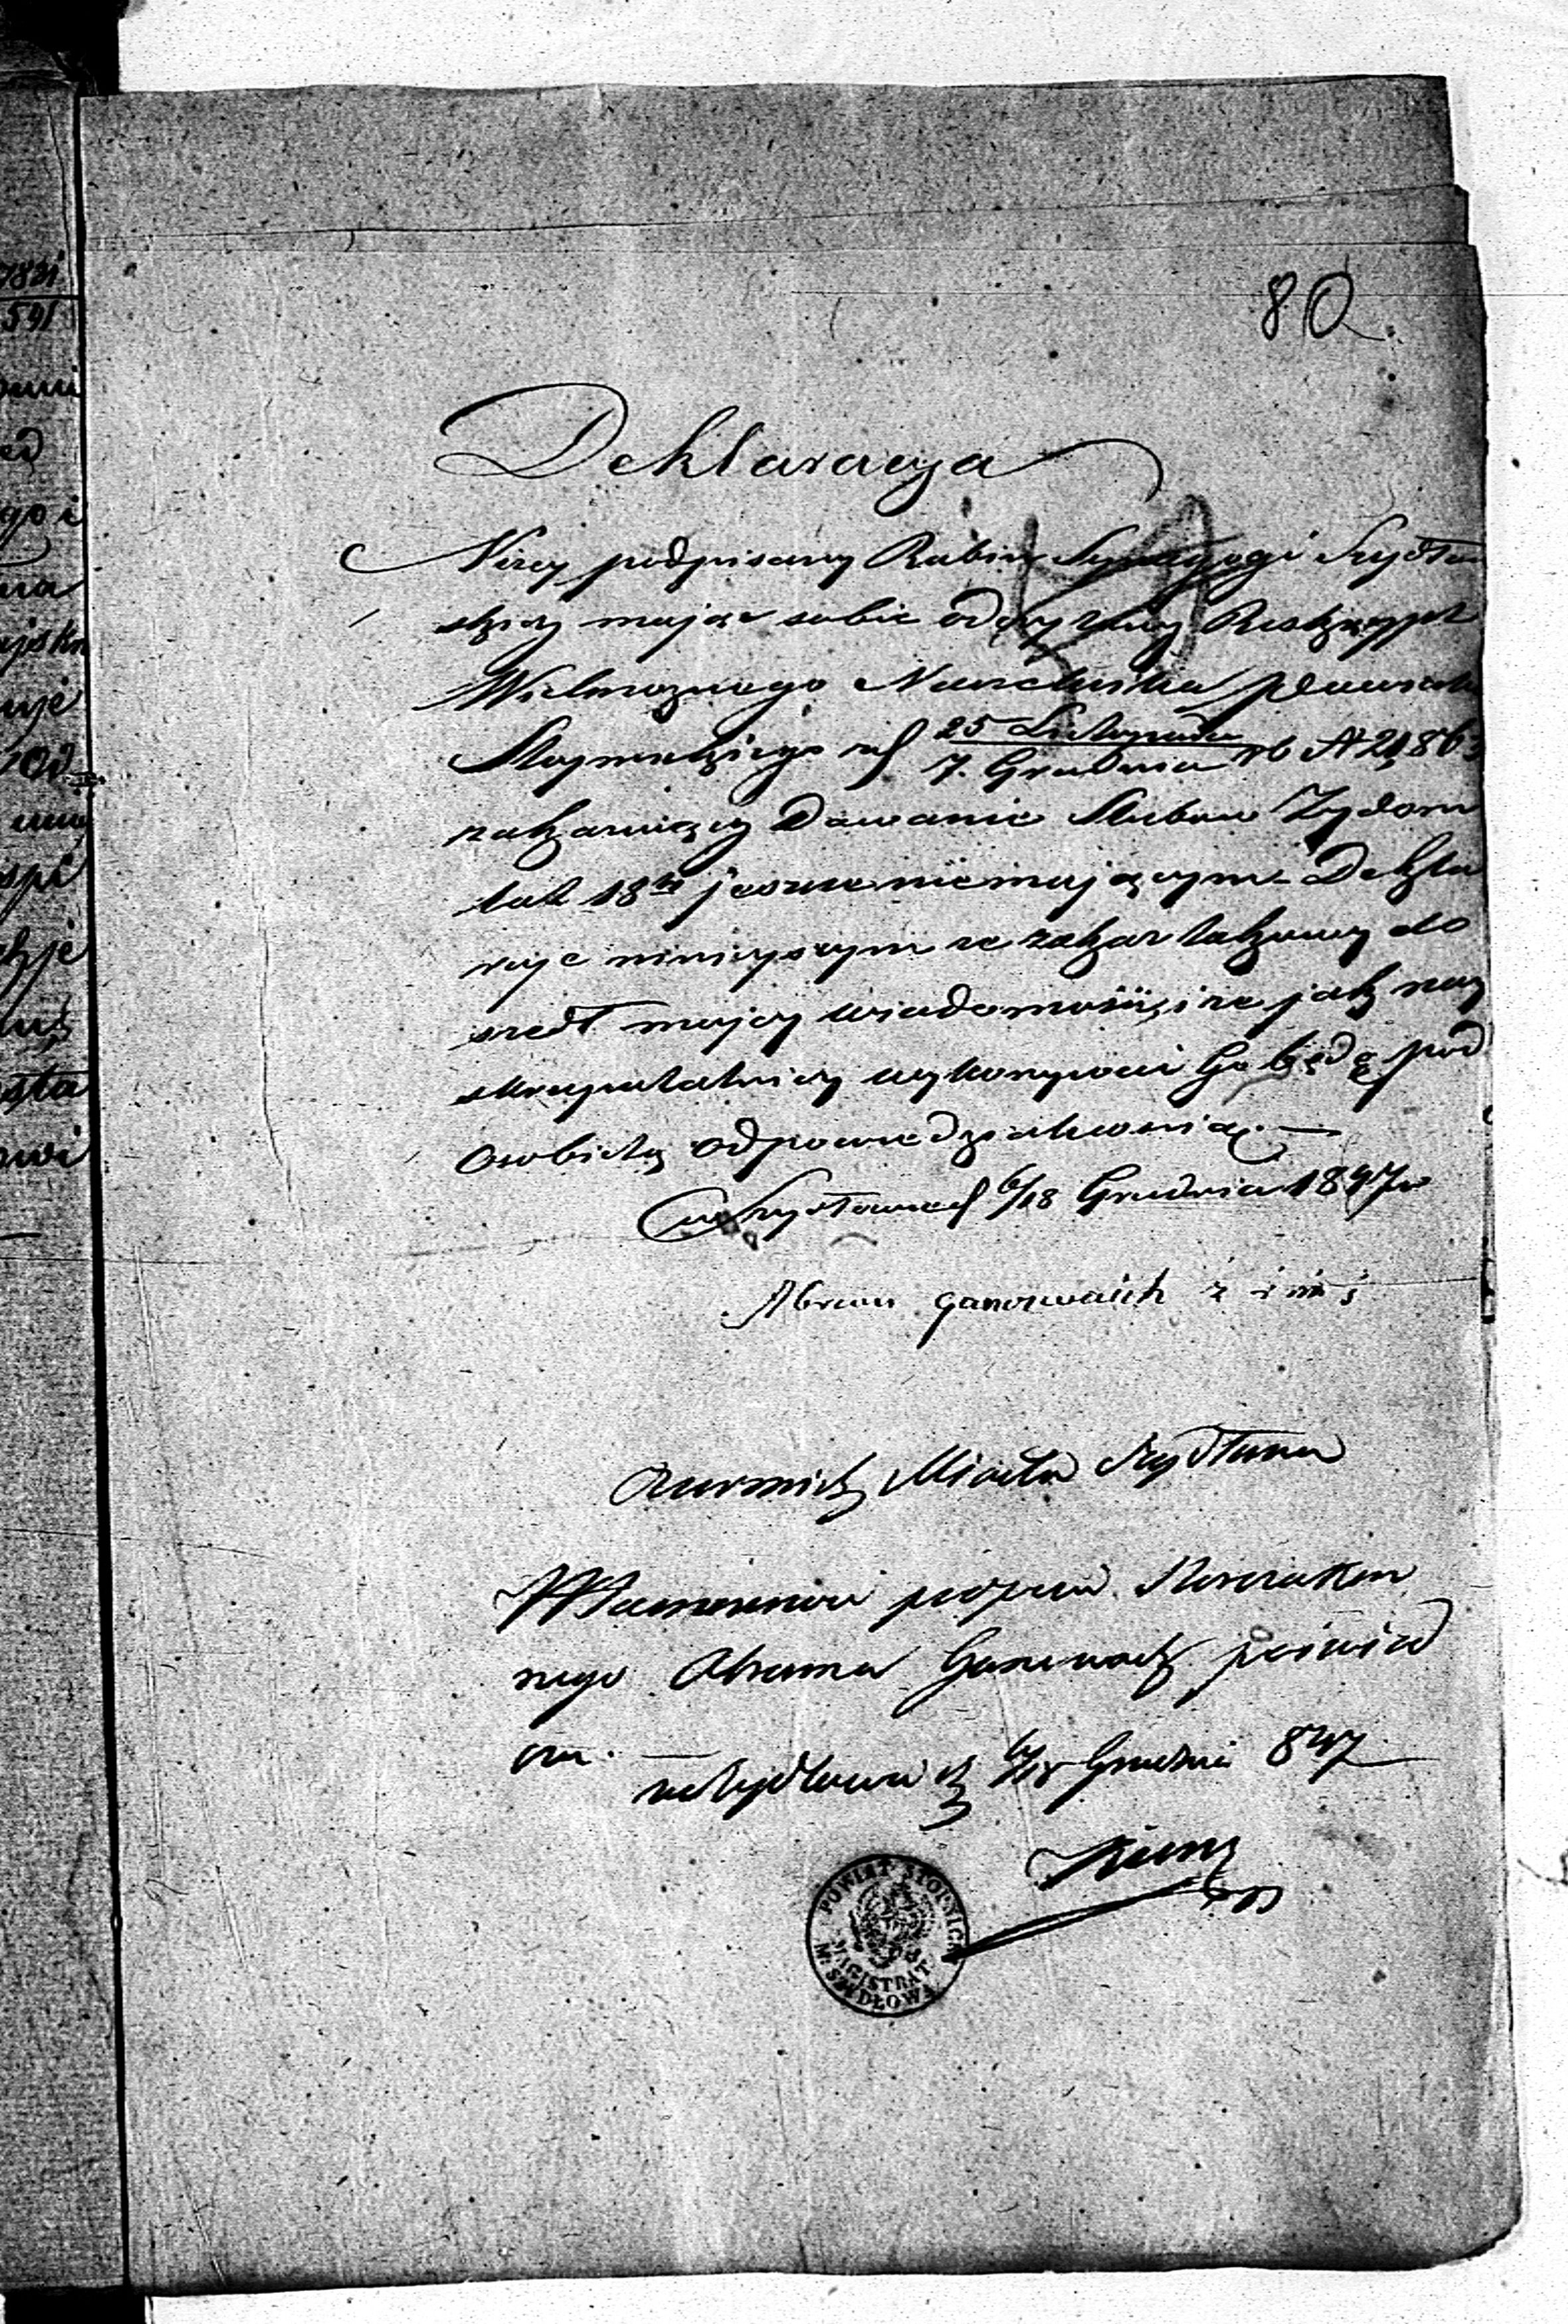 7831
591
80
Deklaracya
Niżey podpisany Rabin Synagogi Szydło
skiey mając sobie odczytany Reskrypt
Wielmożnego Naczelnika Powiatu
Stopnickiego z d 25 Listopada
7. Grudnia rb N 24,863
zakazujący Dawanie Slubow Zydom
lat 18tu jeszcze niemającym - Dekla
ruje niniejszym ze zakaz takowy do
szedł mojey wiadomości, i ze jak nay
skrupulatniey wykonywać Go będę pod
osobistą odpowiedzialnością. —
w Szydłowie d 6/18 Grudnia 1847 r
Abram
Burmistrz Miasta Szydłowa
Własnoręczność podpisu Starozakon
nego Abrama poświad
cza. —
w Szydłowie d 6/18 Grudnia 847
POWIAT STOPNICKI
MAGISTRAT
M. SZYDŁOWA